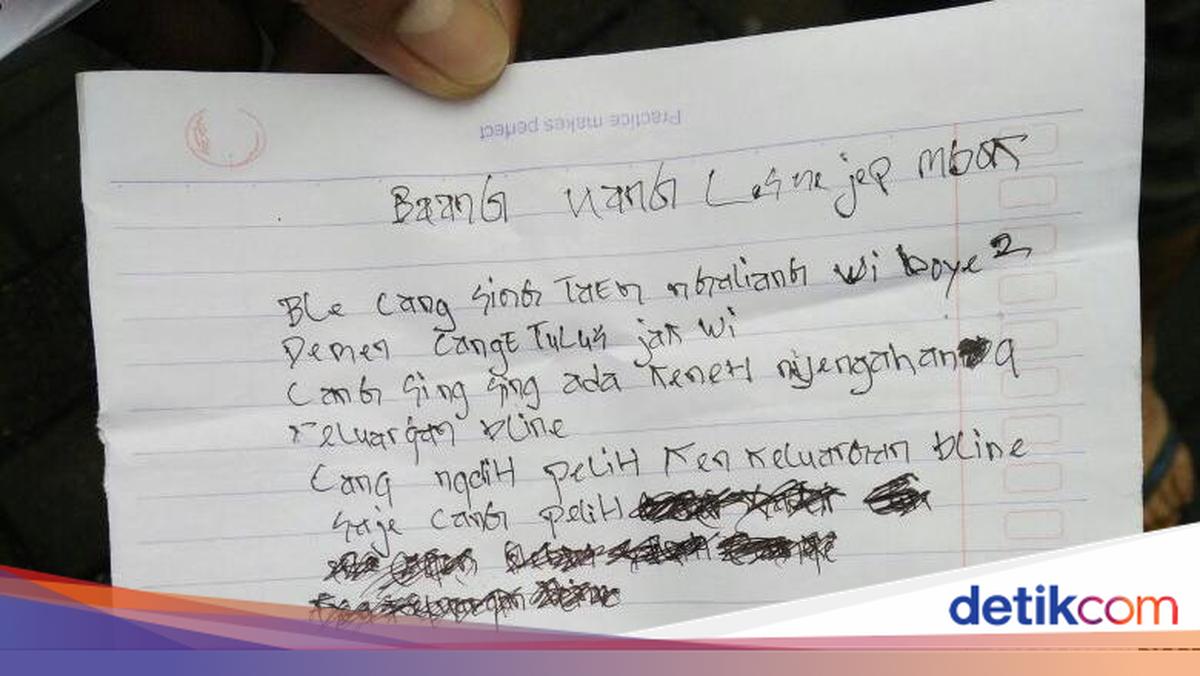 Practice makes perfect
Baang uang Lesnejep mbok
Ble cang sing Taen ngaliang wi boye2
Demen cange Tulus jak wi
Cang sing sing ada keneh nyengahan q
keluargan bline
Cang ngdih pelih ken keluargan bline
saje cang pelih
detikcom